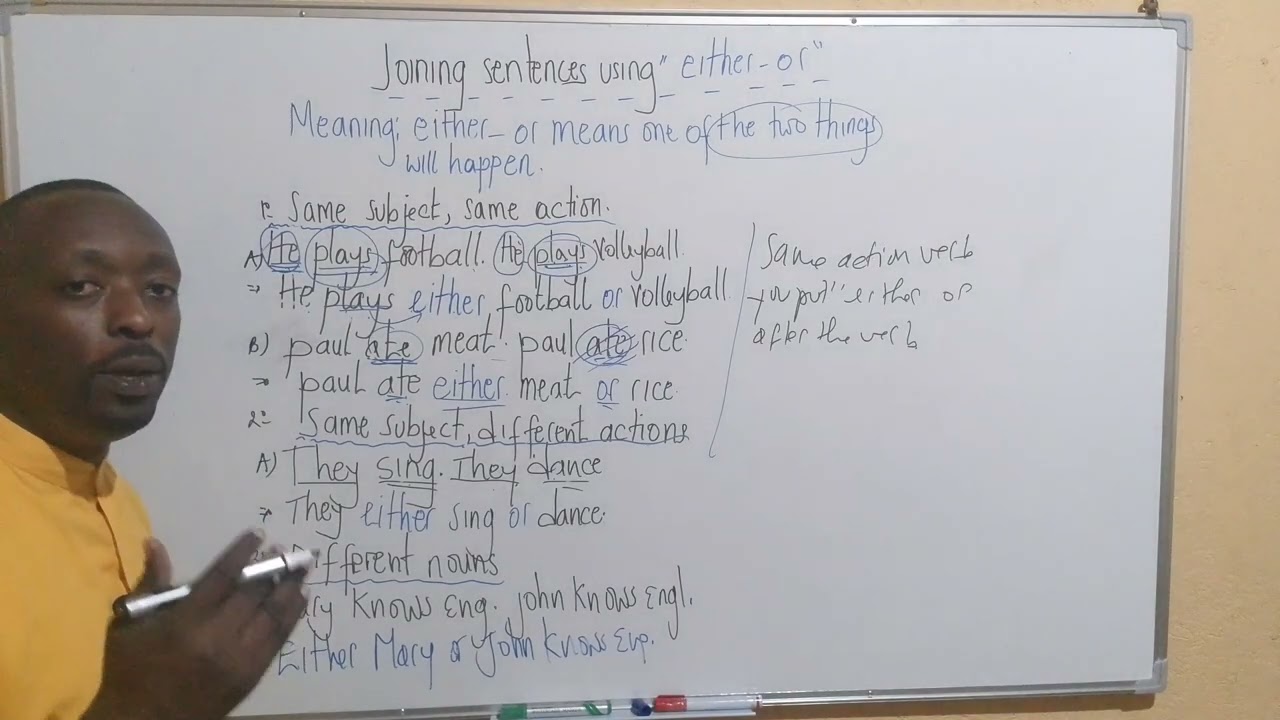 Joining sentences using "either-or"
Meaning: either-or means one of the two things
will happen.
1: Same subject, same action.
A) He plays football. He plays volleyball.
→ He plays either football or volleyball
B) paul ate meat. paul ate rice.
→ paul ate either meat or rice.
2: Same subject, different actions
A) They sing. They dance
→ They either sing or dance.
Different nouns
Knows Eng. John Knows Engl.
Either Mary or John Knows Eng.
Same action verb
you put "either or
after the verb